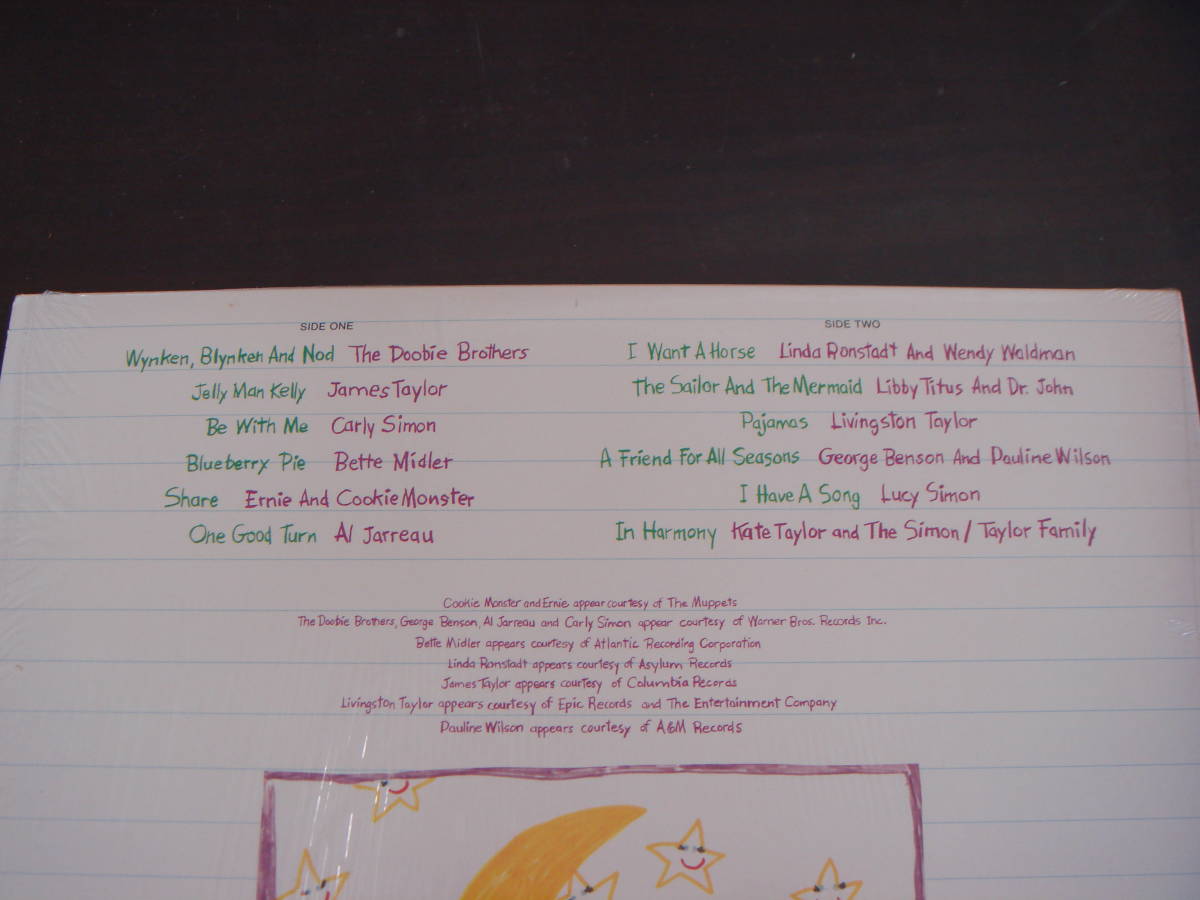 SIDE ONE
Wynken, Blynken And Nod The Doobie Brothers
Jelly Man Kelly James Taylor
Be With Me Carly Simon
Blueberry Pie Bette Midler
Share Ernie And Cookie Monster
One Good Turn Al Jarreau
SIDE TWO
I Want A Horse Linda Ronstadt And Wendy Waldman
The Sailor And The Mermaid Libby Titus And Dr. John
Pajamas Livingston Taylor
A Friend For All Seasons George Benson And Pauline Wilson
I Have A Song Lucy Simon
In Harmony Kate Taylor and The Simon / Taylor Family
Cookie Monster and Ernie appear courtesy of The Muppets
The Doobie Brothers, George Benson, Al Jarreau and Carly Simon appear courtesy of Warner Bros. Records Inc.
Bette Midler appears courtesy of Atlantic Recording Corporation
Linda Ronstadt appears courtesy of Asylum Records
James Taylor appears courtesy of Columbia Records
Livingston Taylor appears courtesy of Epic Records and The Entertainment Company
Pauline Wilson appears courtesy of A&M Records